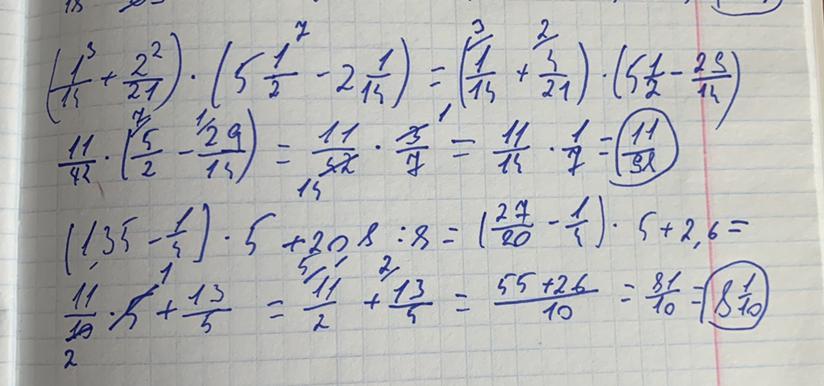 (1/14³ + 2/21²) · (5 1/2⁷ − 2 1/14) = (1/14³ + 4/21²) · (5 1/2 − 29/14)
11/42 · (5/2⁷ − 29/14¹) = 11/42 14 · 3/7¹ = 11/14 · 1/7 = 11/98
(1,35 − 1/4) · 5 + 20,8 : 8 = (27/20 − 1/4) · 5 + 2,6 =
11/10 2 · 5¹ + 13/5 = 11/2⁵ + 13/5² = 55+26/10 = 81/10 = 8 1/10